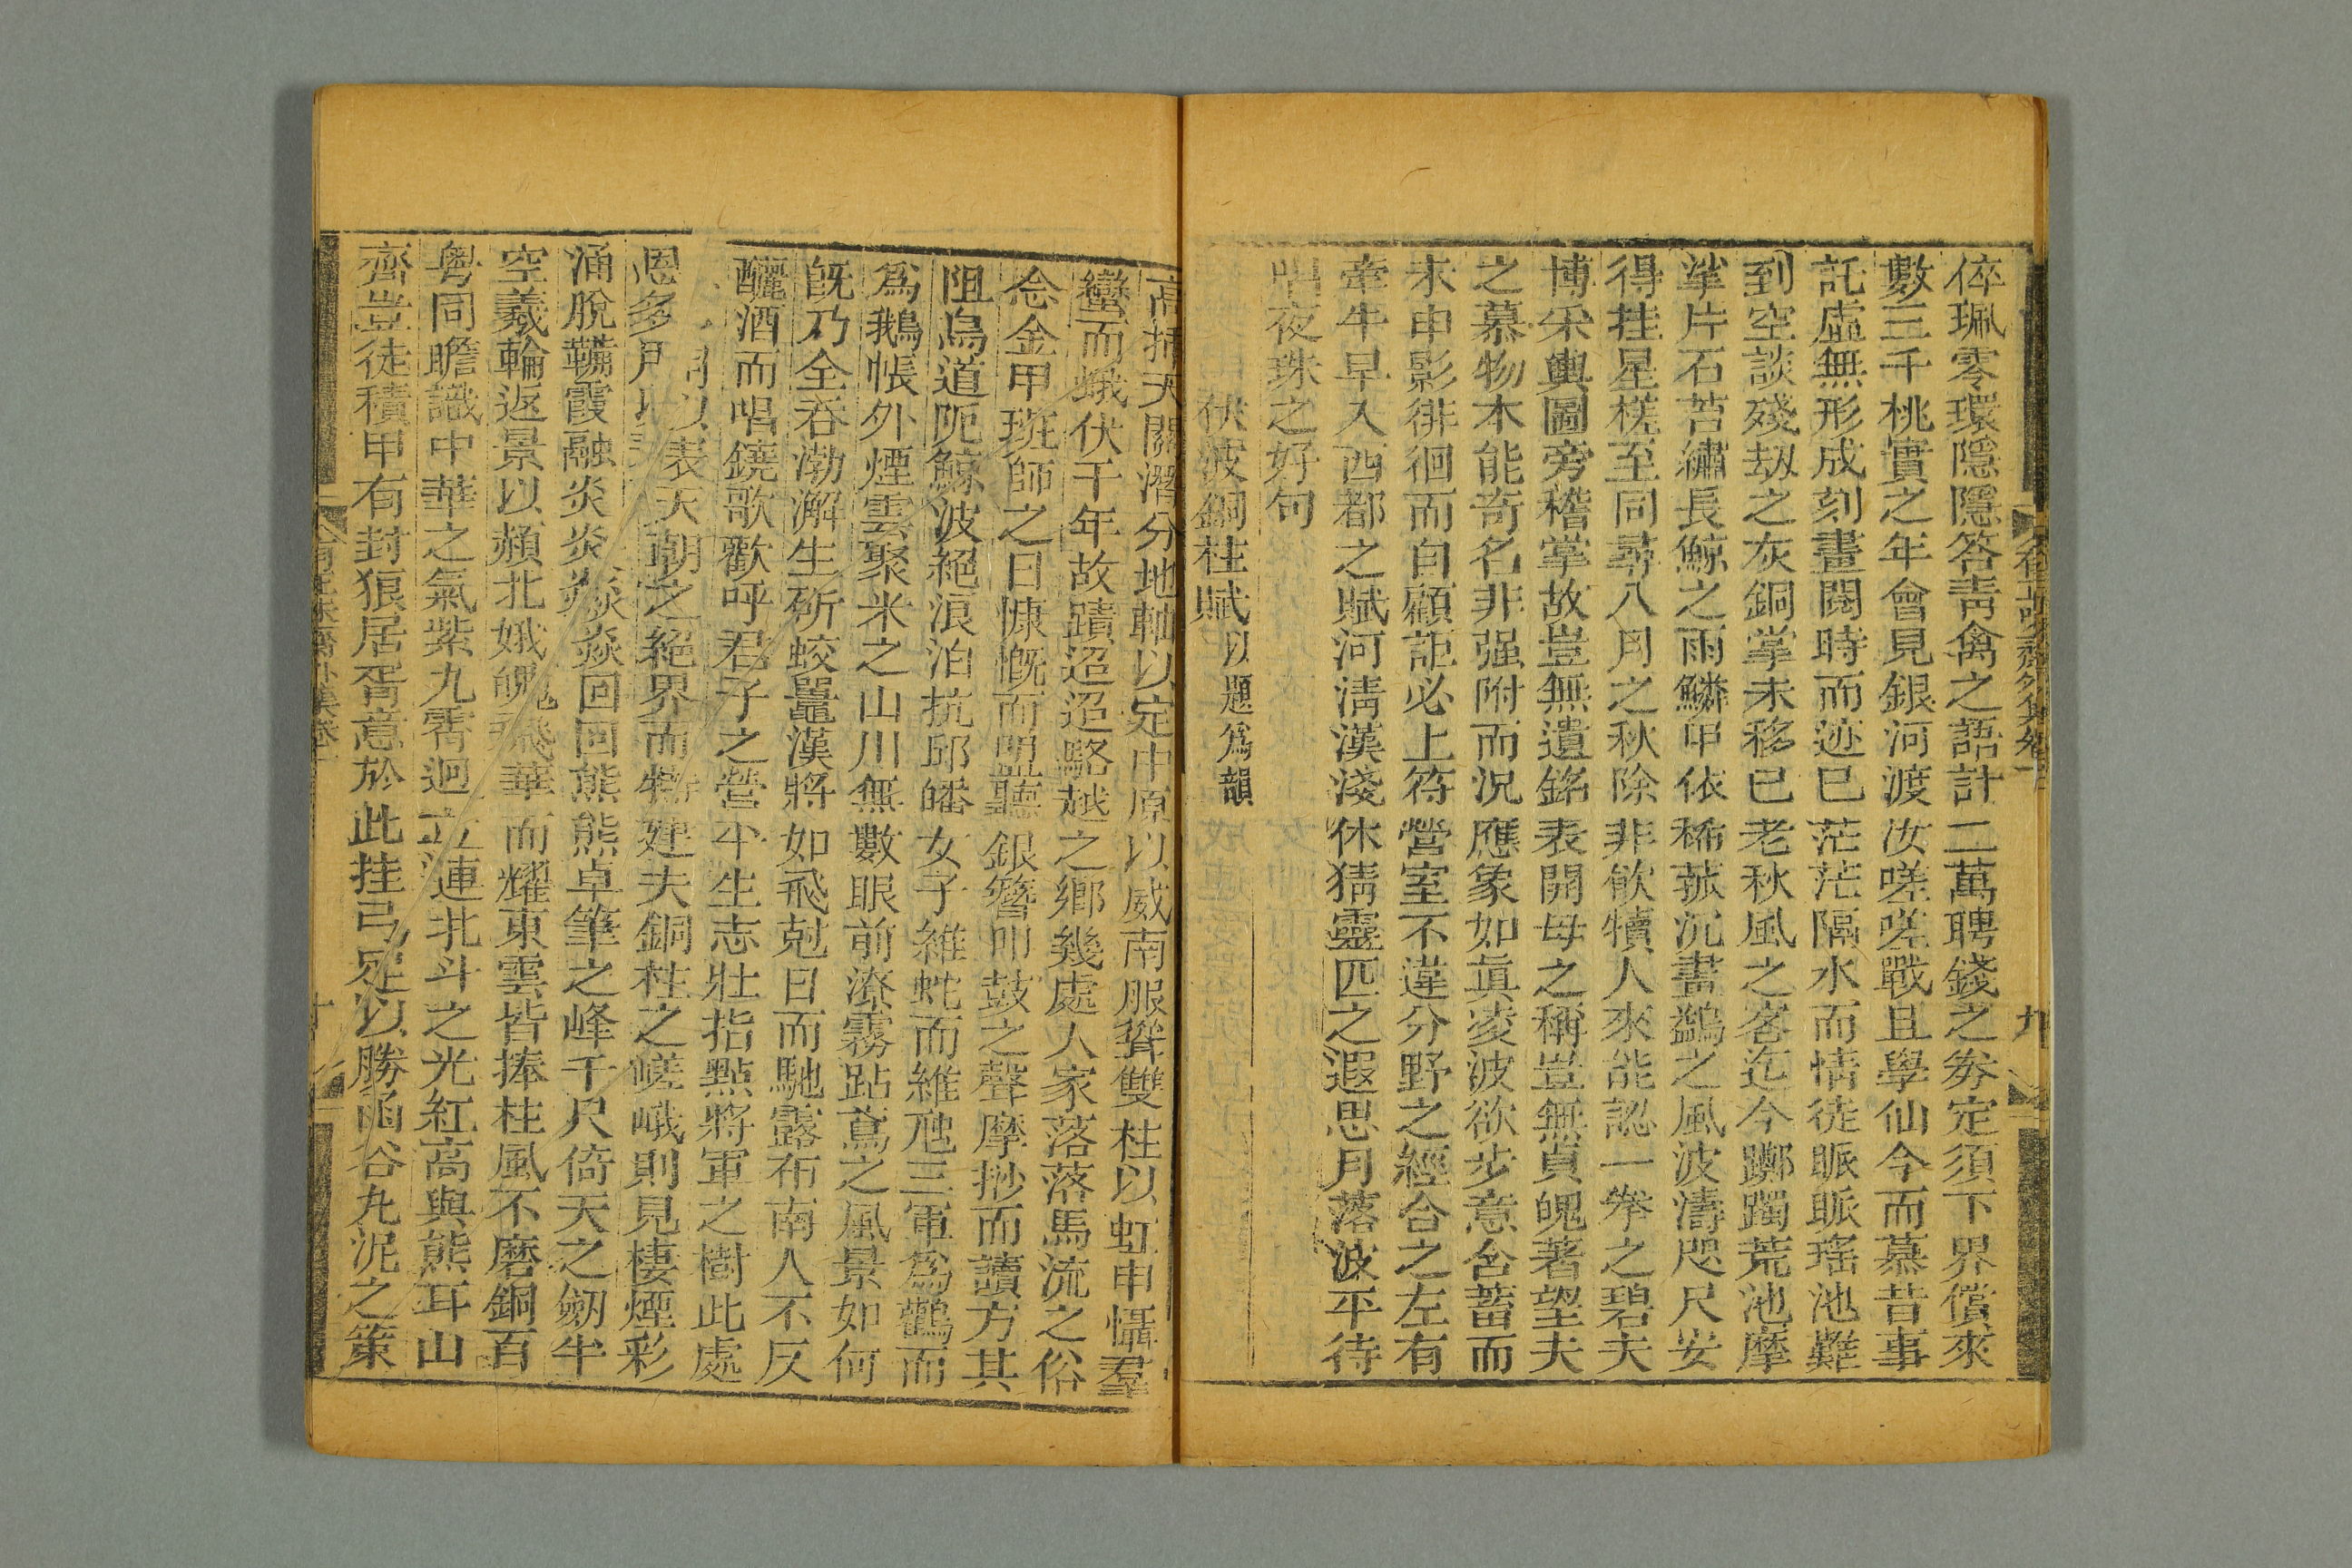 倅珮零環隱隱答靑禽之語計二萬聘錢之劵定須下界償來
數三千桃實之年會見銀河渡汝嗟嗟戰且學仙今而慕昔事
託虛無形成刻畫閱時而迹巳茫茫隔水而情徒脈脈瑤池難
到空談殘刼之灰銅掌未移已老秋風之客迄今躑躅荒池摩
挲片石苔繡長鯨之雨鱗甲依稀菰沉畫鷁之風波濤咫尺安
得挂星槎至同尋八月之秋除非飮犢人來能認一拳之碧夫
博采輿圖旁稽掌故豈無遺銘表開母之稱豈無貞魄著望夫
之慕物本能奇名非强附而況應象如眞凌波欲步意含蓄而
未申影徘徊而自顧詎必上符營室不違分野之經合之左有
牽牛早入西都之賦河淸漢淺休猜靈匹之遐思月落波平待
唱夜珠之好句
伏波銅柱賦以題爲韻
高插天關潛分地軸以定中原以威南服聳雙柱以虹申懾羣
蠻而蛾伏千年故蹟迢迢駱越之鄉幾處人家落落馬流之俗
念金甲班師之日慷慨而盟聽銀簪叩鼓之聲摩挱而讀方其
阻鳥道阨鯨波絕浪泊抗邱皤女子維蛇而維虺三軍爲鸛而
爲鵝帳外煙雲聚米之山川無數眼前潦霧跕鳶之風景如何
旣乃全吞渤澥生斫蛟鼉漢將如飛尅日而馳露布南人不反
釃酒而唱鐃歌歡呼君子之營平生志壯指點將軍之樹此處
恩多用以表天朝之絕界而特建夫銅柱之嵯峨則見棲煙彩
涌脫韉霞融炎炎焱焱回回熊熊卓筆之峰千尺倚天之劒半
空羲輪返景以頳北娥魄飛華而耀東雲皆捧柱風不磨銅百
粤同瞻識中華之氣紫九霄迥立連北斗之光紅高與熊耳山
齊豈徒積甲有封狼居胥意於此挂弓足以勝函谷丸泥之策